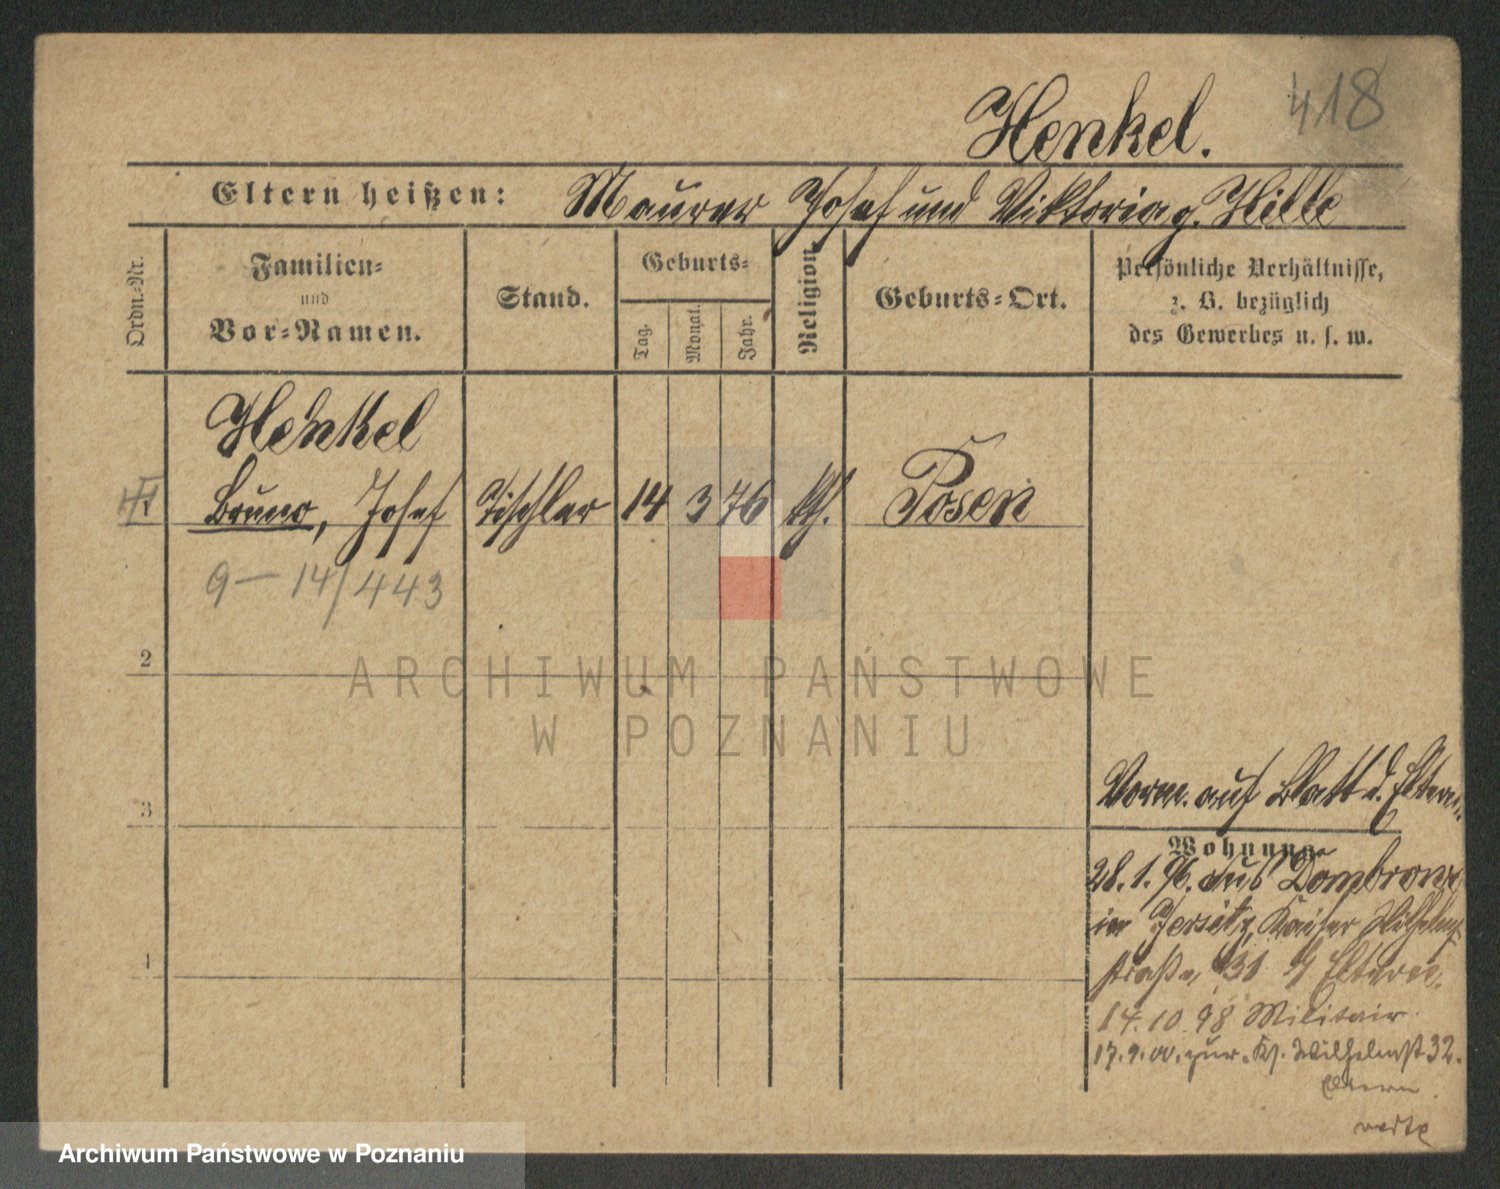 418
Henkel.
Eltern heißen: Maurer Josef und Viktoria g. Hille
Ordn.-Nr.
Familien-
und
Vor-Namen.
Stand.
Geburts-
Tag.
Monat.
Jahr.
Religion
Geburts-Ort.
Persönliche Verhältnisse,
z. B. bezüglich
des Gewerbes u. s. w.
Henkel
Bruno, Josef Tischler 14 3 76 kth. Posen
9-14/443
2
3
4
Vorm. auf Blatt d. Eltern.
Wohnung
28.1.96. aus Dombrowo
in Jersitz, Kaiser Wilhelm
straße 31 Eltern.
14.10.98 Militair.
17.9.00. zur. Ks. Wilhelmst 32.
Eltern.
verte
ARCHIWUM PAŃSTWOWE
W POZNANIU
Archiwum Państwowe w Poznaniu